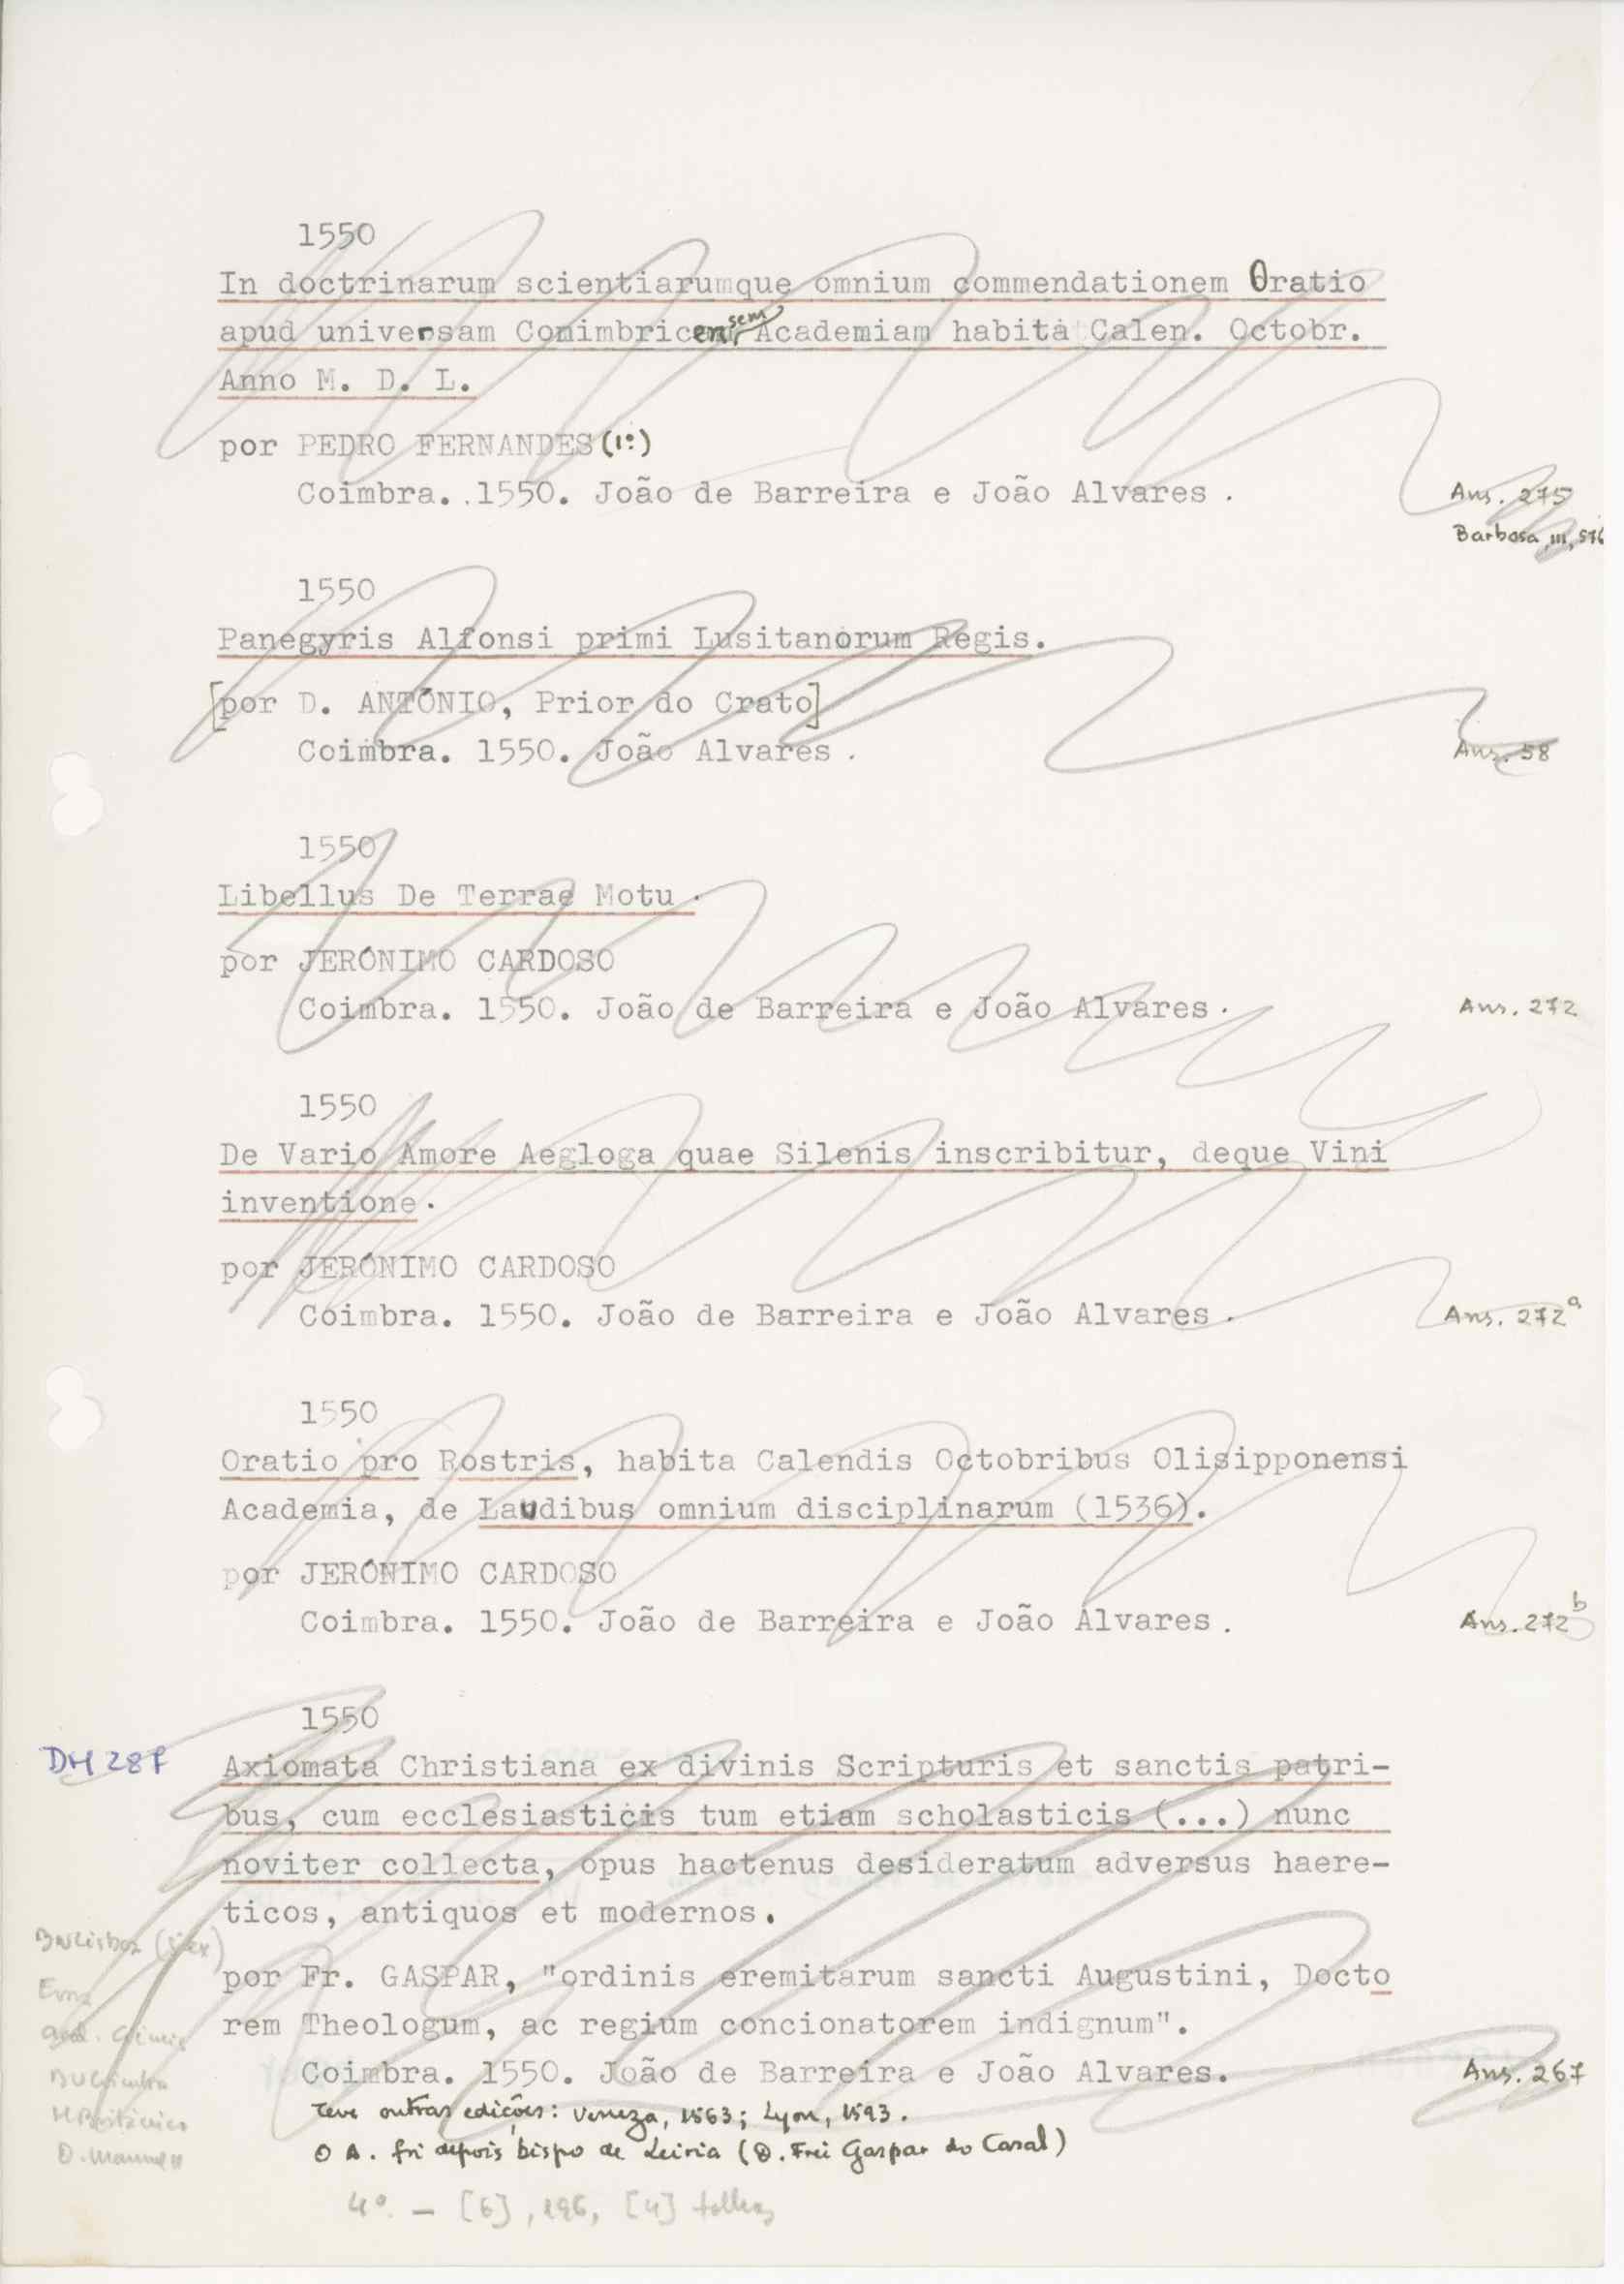 1550
In doctrinarum scientiarumque omnium commendationem Oratio
apud universam Conimbricensem Academiam habita Calen. Octobr.
Anno M. D. L.
por PEDRO FERNANDES (1º)
Coimbra. 1550. João de Barreira e João Alvares .
Ans. 275
Barbosa, III, 576
1550
Panegyris Alfonsi primi Lusitanorum Regis.
[por D. ANTÓNIO, Prior do Crato]
Coimbra. 1550. João Alvares .
Ans. 58
1550
Libellus De Terrae Motu .
por JERÓNIMO CARDOSO
Coimbra. 1550. João de Barreira e João Alvares .
Ans. 272
1550
De Vario Amore Aegloga quae Silenis inscribitur, deque Vini
inventione .
por JERÓNIMO CARDOSO
Coimbra. 1550. João de Barreira e João Alvares .
Ans. 272a
1550
Oratio pro Rostris, habita Calendis Octobribus Olisipponensi
Academia, de Laudibus omnium disciplinarum (1536).
por JERÓNIMO CARDOSO
Coimbra. 1550. João de Barreira e João Álvares .
Ans. 272b
1550
DM 287
Axiomata Christiana ex divinis Scripturis et sanctis patri-
bus, cum ecclesiasticis tum etiam scholasticis (...) nunc
noviter collecta, opus hactenus desideratum adversus haere-
ticos, antiquos et modernos.
BNLisboa (5 ex)
por Fr. GASPAR, "ordinis eremitarum sancti Augustini, Docto
Evora
rem Theologum, ac regium concionatorem indignum".
Coimbra. 1550. João de Barreira e João Alvares.
Ans. 267
BUCoimbra
Teve outras edições: Veneza, 1563; Lyon, 1593.
M. Británico
O A. foi depois bispo de Leiria (D. Frei Gaspar do Casal)
D. Manuel II
4º. — [6], 196, [4] folhas